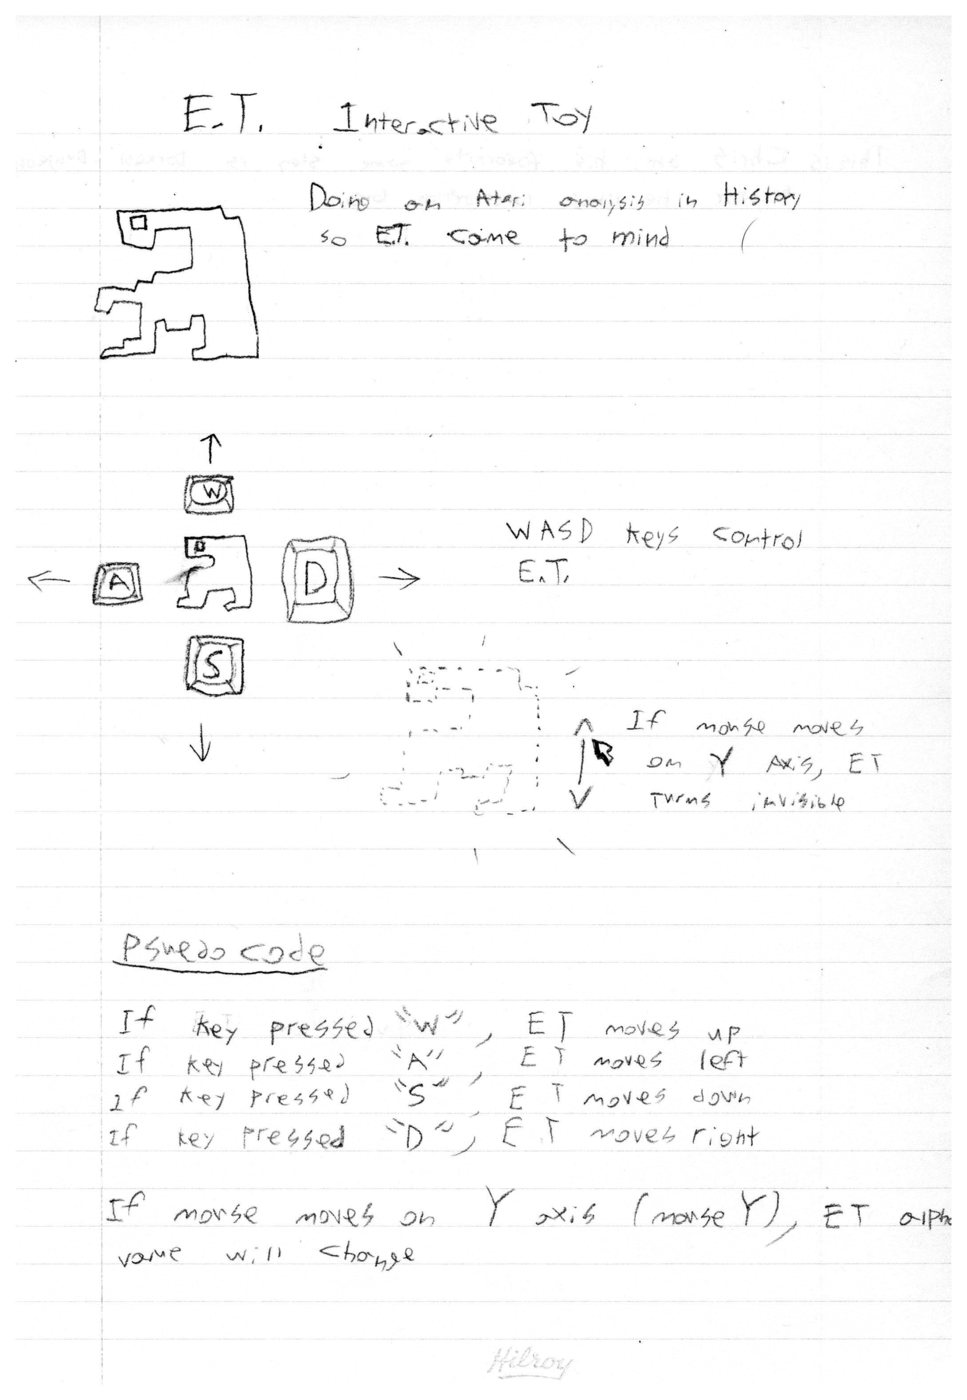 E.T. Interactive Toy
Doing an Atari analysis in History
so E.T. came to mind (
W
A
D
S
WASD keys control
E.T.
If mouse moves
on Y Axis, ET
turns invisible
Psuedo code
If key pressed "W", ET moves up
If key pressed "A", ET moves left
If key pressed "S", ET moves down
If key pressed "D", ET moves right
If mouse moves on Y axis (mouse Y), ET alph
value will change
Hilroy